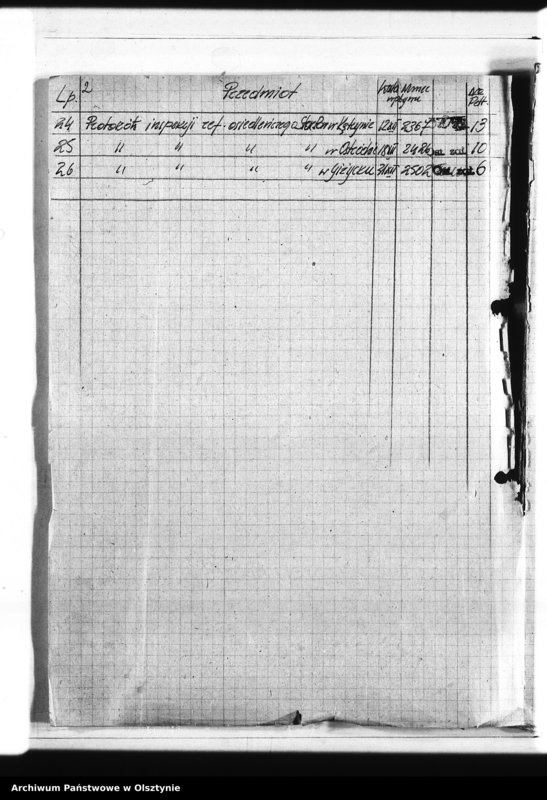 Lp. 2 Przedmiot Data Numer wpływu Ilość
24 Protokół inspekcji ref. osiedleńczego Star. Pow. w Kętrzynie 12 XII 2367 13
25 " " " " w Ostródzie 18 XII 2426 os. zał. 10
26 " " " " w Giżycku 31 XII 2502 os. zał. 6
Archiwum Państwowe w Olsztynie